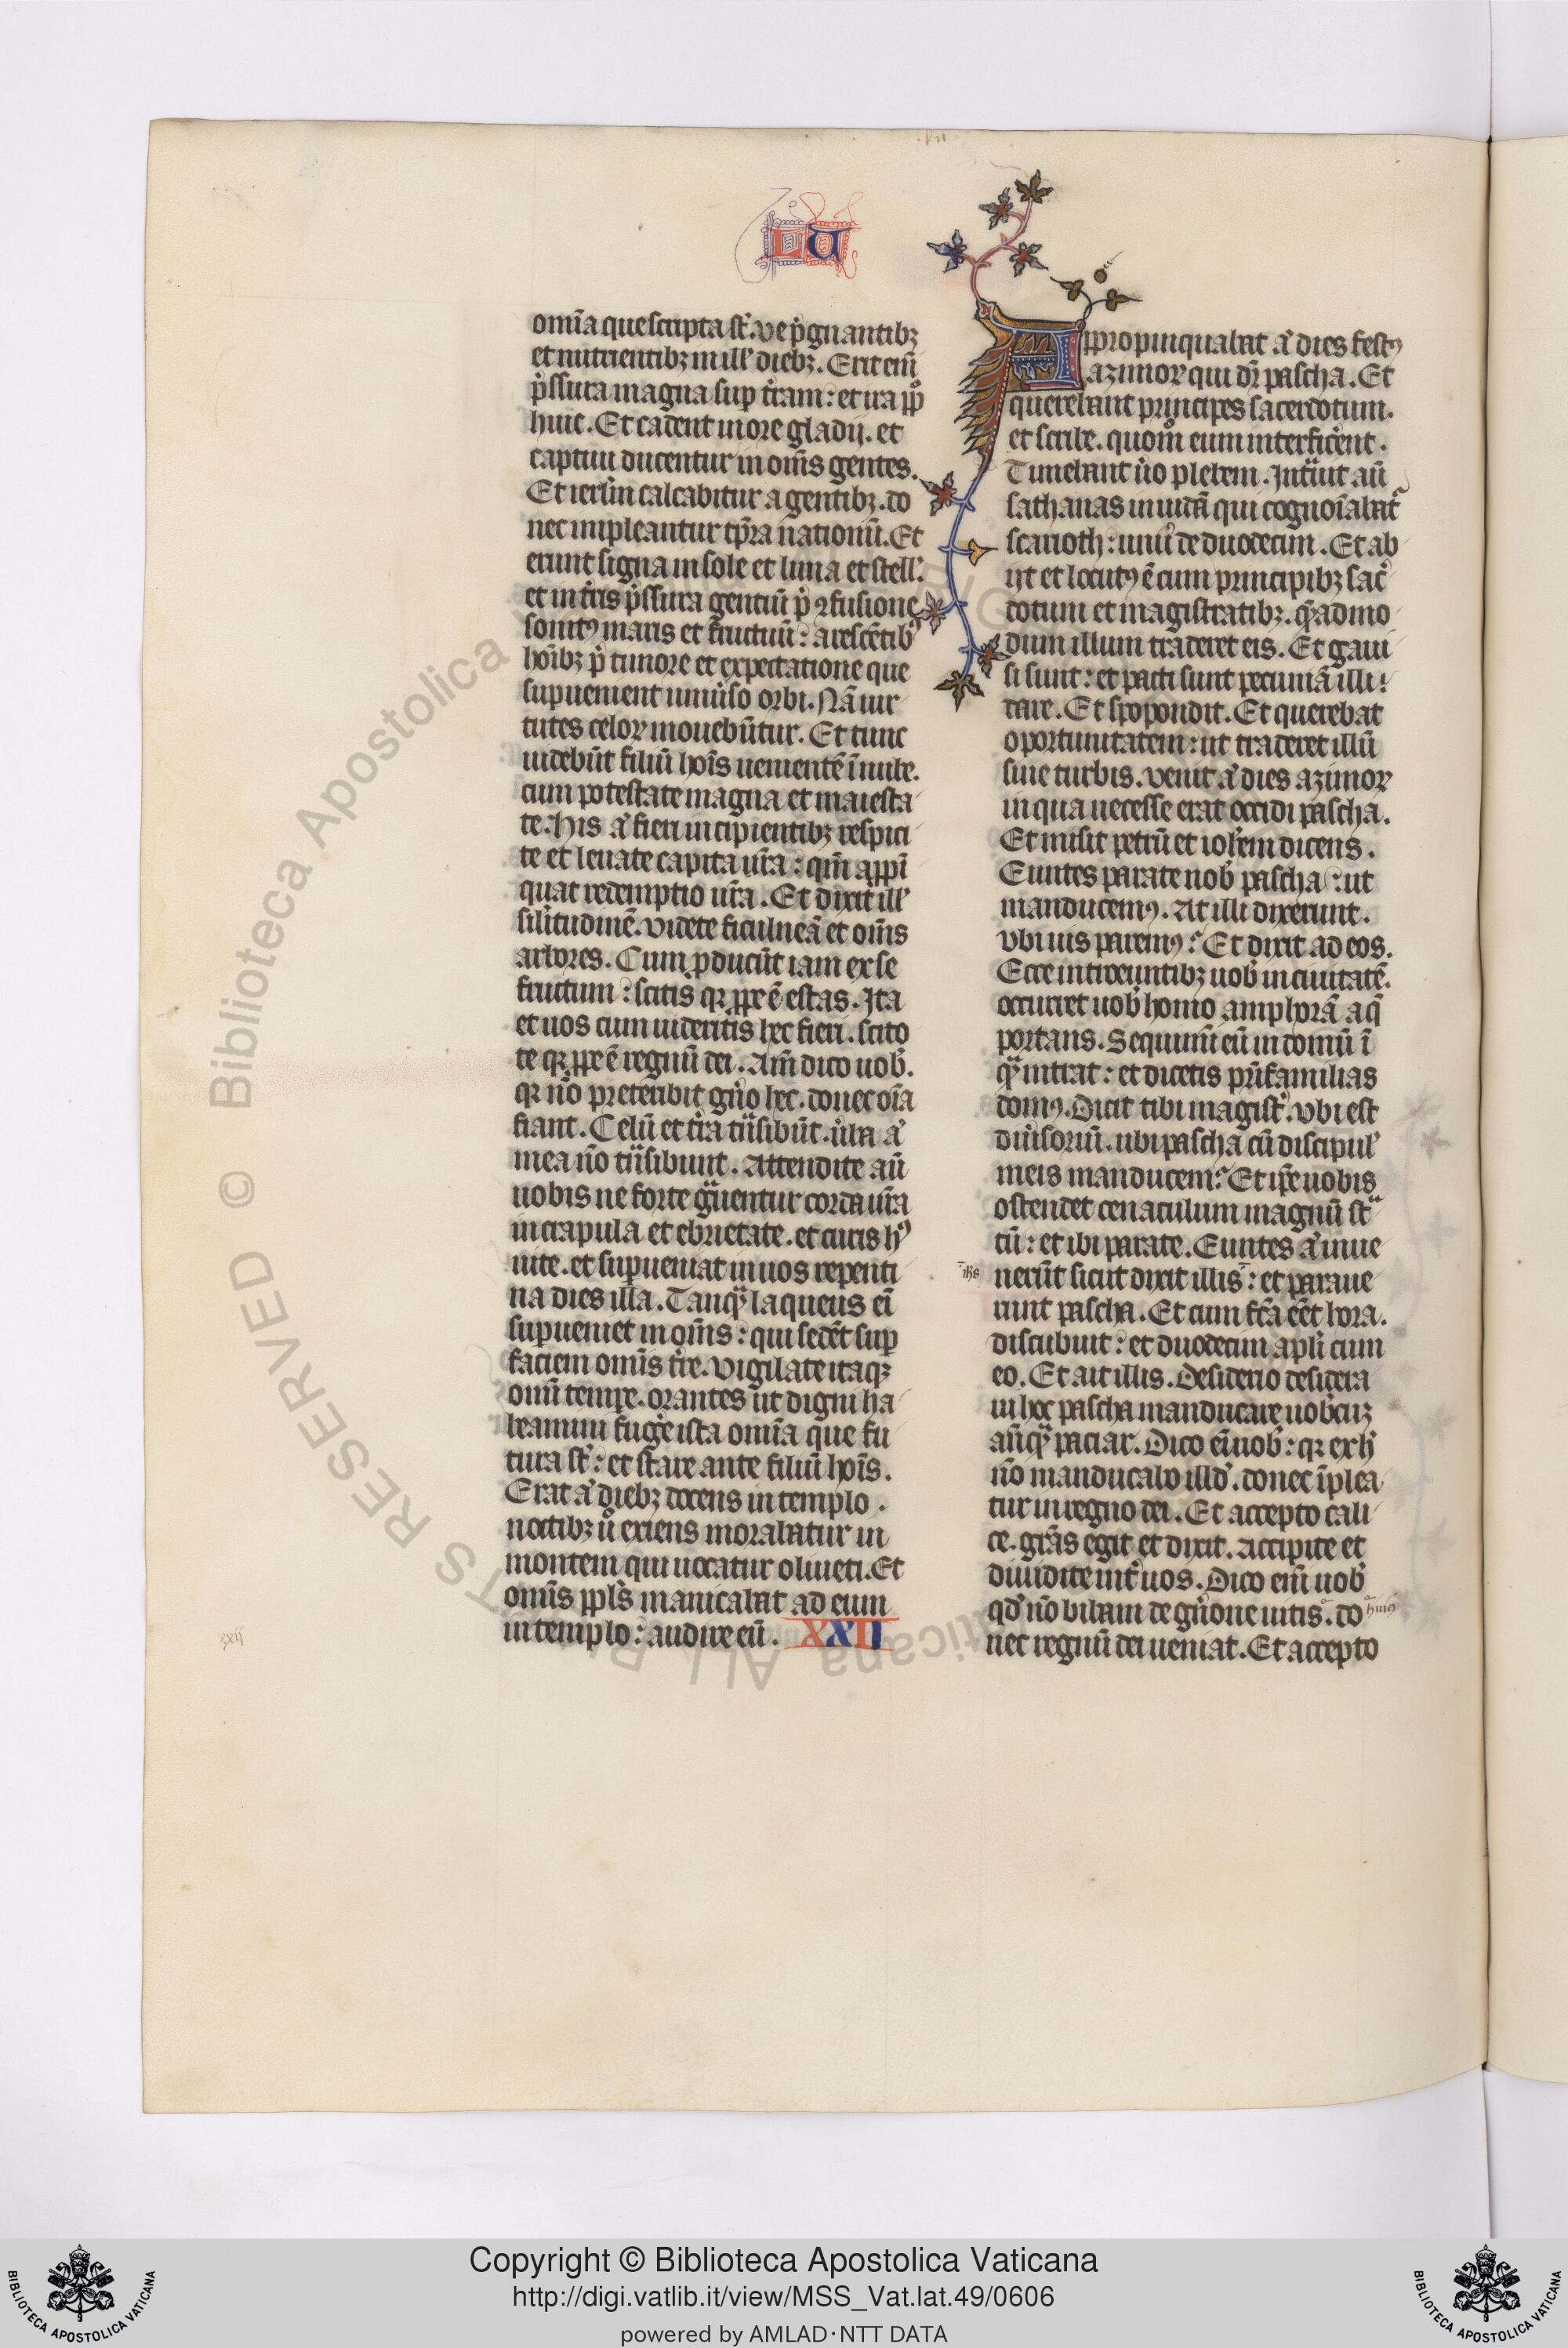 LU
omīa que scripta st̄. ve p̄gnantibꝫ
et nutrientibꝫ in ill' diebꝫ. Erit eiī
p̄ssura magna sup t̄ram: et ira pp̄lo
huic. Et cadent in ore gladij. et
captiui ducentur in om̄s gentes.
Et ierl̄m calcabitur a gentibꝫ. do
nec impleantur tp̄ra nationū. Et
erunt signa in sole et luna et stell'.
et in t̄ris p̄ssura gentiū p̄ ꝯfusione
sonitꝰ maris et fluctuū: arescētibꝰ
hoībꝫ p̄ timore et expectatione que
supuenient uniūso orbi. Nā uir
tutes celoꝝ mouebūtur. Et tunc
uidebūt filiū hoīs uenientē ī nube.
cum potestate magna et maiesta
te. His aͤ fieri incipientibꝫ respici
te et leuate capita ur̄a: qm̄ appī
quat redemptio ur̄a. Et dixit ill'
silitudinē. Videte ficulneā et om̄s
arbores. Cum ꝓducūt iam ex se
fructum: scitis qꝛ ꝓpe ē estas. Ita
et uos cum uideritis hec fieri. scito
te qꝛ ꝓpe ē regnū dei. Am̄ dico uob̄.
qꝛ n̄o preteribit gn̄o hec. donec oīa
fiant. Celū et t̄ra tͣnsibūt. ūba aͤ
mea n̄o tͣnsibunt. Attendite aū
uobis ne forte gͣuentur corda ur̄a
in crapula et ebrietate. et curis hꝰ
uite. et supueniat in uos repenti
na dies illa. Tanqͣ laqueus eī
supueniet in om̄s: qui sedēt sup
faciem omīs t̄re. Vigilate itaqꝫ
omī tempe. orantes ut digni ha
beamini fuḡe ista omīa que fu
tura st̄: et stare ante filiū hoīs.
Erat aͤ diebꝫ docens in templo.
noctibꝫ ūo exiens morabatur in
montem qui uocatur oliueti. Et
omīs ppl̄s manicabat ad eum
in templo: audire eū. XXII
xxij
Appropinquabat aͤ dies festꝰ
azimoꝝ qui dr̄ pascha. Et
querebant principes sacerdotum.
et scribe. quom̊ eum interfic̄ent.
Timebant ūo plebem. Intͣuit aū
sathanas in iudā qui cognoīabatͬ
scarioth: unū de duodecim. Et ab
ijt et locutꝰ ē cum principibꝫ sac̄
dotum et magistratibꝫ. qͤadmo
dum illum traderet eis. Et gaui
si sunt: et pacti sunt pecuniā illi
dare. Et spopondit. Et querebat
oportunitatem: ut traderet illū
sine turbis. Venit aͤ dies azimoꝝ
in qua necesse erat occidi pascha.
Et misit petrū et ioh̄em dicens.
Euntes parate nob̄ pascha: ut
manducemꝰ. At illi dixerunt.
Vbi uis paremꝰ? Et dixit ad eos.
Ecce introeuntibꝫ uob̄ in ciuitatē.
occurret uob̄ homo amphorā aq̄
portans. Sequimī eū in domū ī
qͣ intrat: et dicetis pr̄ifamilias
domꝰ. Dicit tibi magist̄. Vbi est
diūsoriū. ubi pascha cū discipul'
meis manducem? Et ip̄e uobis
ostendet cenaculum magnū stͣ
tū: et ibi parate. Euntes aͤ inue
nerūt sicut dixit illis: et paraue
ihs
runt pascha. Et cum fc̄a eēt hora.
discubuit: et duodecim apl̄i cum
eo. Et ait illis. Desiderio desidera
ui hoc pascha manducare uob̄cuꝫ
an̄qͣ patiar. Dico eī uob̄: qꝛ ex h̄
n̄o manducabo illd̄. donec īplea
tur in regno dei. Et accepto cali
ce. gr̄as egit et dixit. Accipite et
diuidite int̄ uos. Dico eiī uob̄
qd̄ n̄o bibam de gn̄one uitis. do
huiꝰ
nec regnū dei ueniat. Et accepto
© Biblioteca Apostolica Vaticana ALL RIGHTS RESERVED
Copyright © Biblioteca Apostolica Vaticana
http://digi.vatlib.it/view/MSS_Vat.lat.49/0606
powered by AMLAD·NTT DATA
BIBLIOTECA APOSTOLICA VATICANA
BIBLIOTECA APOSTOLICA VATICANA